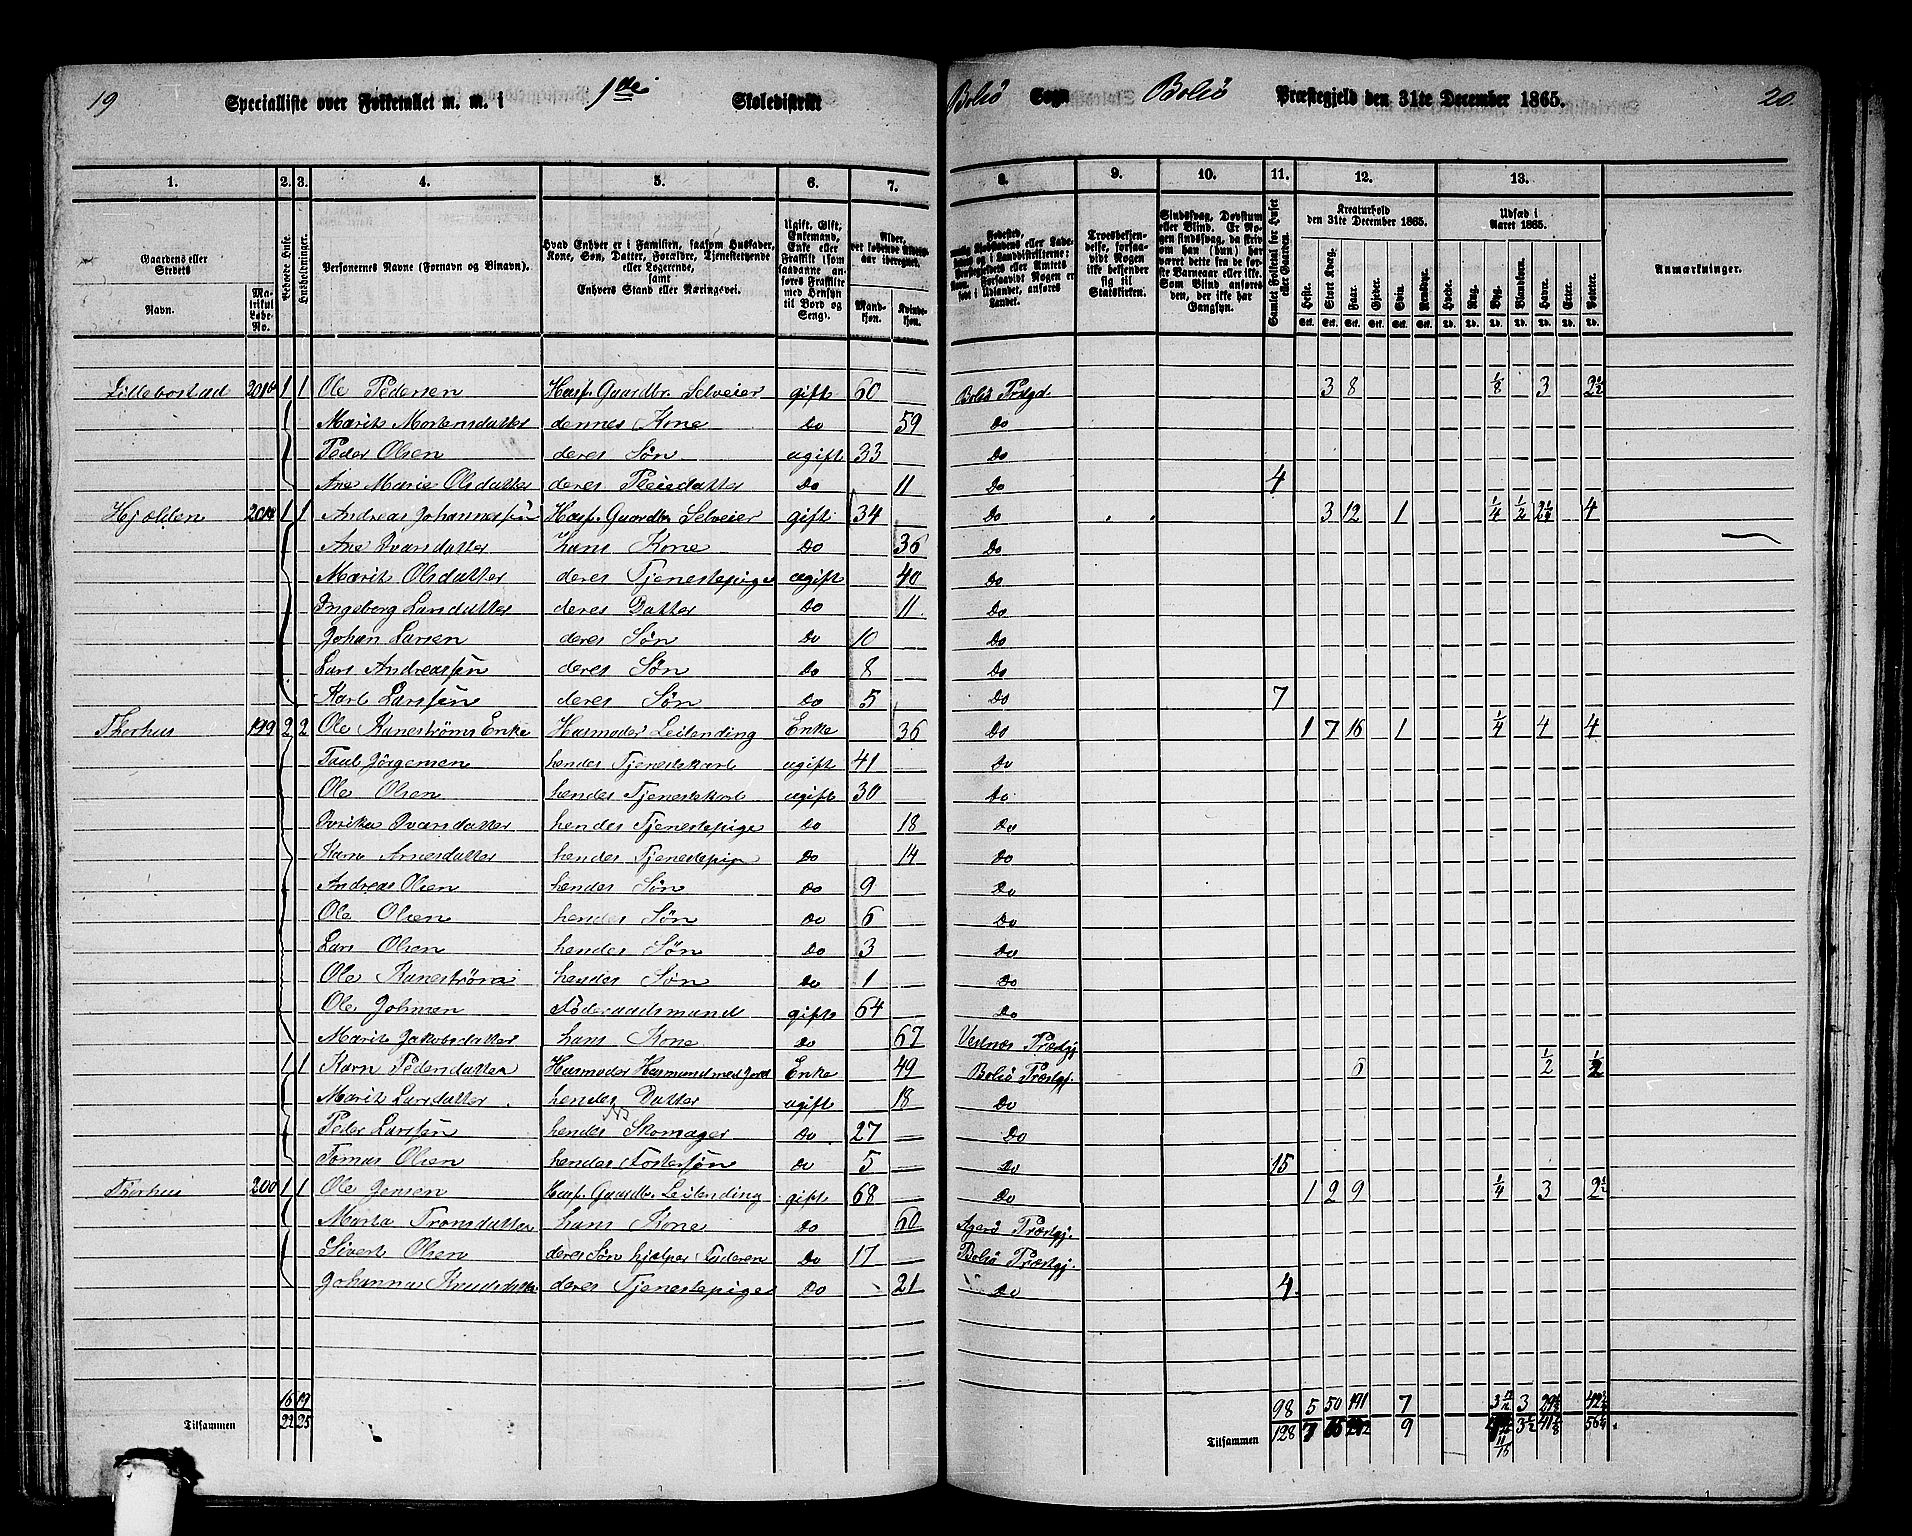 19 Specialliste over Folketallet m. m. i 1ste Skoledistrikt Bolsö Sogn Bolsö Præstegjeld den 31te December 1865. 20.
1. 2. 3. 4. 5. 6. 7. 8. 9. 10. 11. 12. 13.
Gaardens eller Stedets Navn. Matrikul Løbe-No. Beboede Huse. Husholdninger. Personernes Navne (Fornavn og Tilnavn). Hvad Enhver er i Familien, saasom Husfader, Kone, Søn, Datter, Forældre, Tjenestetyende eller Logerende, samt Enhvers Stand eller Næringsvei. Mandkjøn. Kvindekjøn.
Troesbekjendelse, forsaavidt Nogen ikke bekjender sig til Statskirken. Samlet Folketal for Huset eller Gaarden.
Kreaturhold den 31te December 1865. Udsæd i Aaret 1865. Anmærkninger.
Heste. Stort Kvæg. Faar. Gjeder. Svin. Rensdyr. Hvede. Rug. Byg. Blandkorn. Havre. Erter. Poteter.
Lillebostad 201b 1 1 Ole Pedersen Husf. Gaardbr. Selveier gift 60 Bolsö Prstgd. 3 8 1/8 3 2 1/2
Marit Mortensdatter dennes Kone Do 59 Do
Peder Olsen deres Søn ugift 33 Do
Ane Marie Olsdatter deres Pleiedatter Do 11 Do 4
Hjelden 201a 1 1 Andreas Johannessen Husf. Gaardbr. Selveier gift 34 Do 3 12 1 1/4 1/2 2 1/4 4
Ane Ivarsdatter hans Kone Do 36 Do
Marit Olsdatter deres Tjenestepige ugift 40 Do
Ingeborg Larsdatter deres Datter Do 11 Do
Johan Larsen deres Søn Do 10 Do
Lars Andreassen deres Søn Do 8 Do
Karl Larssen deres Søn Do 5 Do 7
Thorhus 199 2 2 Ole Kanestrøms Enke Husmoder Leilending Enke 36 Do 1 7 16 1 1/4 4 4
Paul Jörgensen hendes Tjenestekarl ugift 41 Do
Ole Olsen hendes Tjenestekarl ugift 30 Do
Ivarsdatter hendes Tjenestepige Do 18 Do
Karn Arnesdatter hendes Tjenestepige Do 14 Do
Andreas Olsen hendes Søn Do 9 Do
Ole Olsen hendes Søn Do 6 Do
Lars Olsen hendes Søn Do 3 Do
Ole Kanestrøm hendes Søn Do 1 Do
Ole Johnsen Föderaadsmand gift 64 Do
Marit Jakobsdatter hans Kone Do 67 Vestnæs Præstgj
1 1 Karn Pedersdatter Husmoder Husmand med Jord Enke 49 Bolsö Præstgj. 6 1/2 1/2
Marit Larsdatter hendes Datter ugift 18 Do
Peder Larssen hendes Skomager Do 27 Do
Tomas Olsen hendes Fostersøn Do 5 Do 15
Thorhus 200 1 1 Ole Jensen Husf. Gaardbr. Leilending gift 68 Do 1 2 9 1/4 3 2 1/2
Marta Tronsdatter hans Kone Do 60 Agerö Præstgj.
Sivert Olsen deres Søn hjelper Faderen Do 17 Bolsö Præstgj.
Johanna Knudsdatter deres Tjenestepige Do 21 Do 4
16 19 98 5 50 191 7 3 3
Tilsammen 22 25 Tilsammen 128 7 9 3 1/2